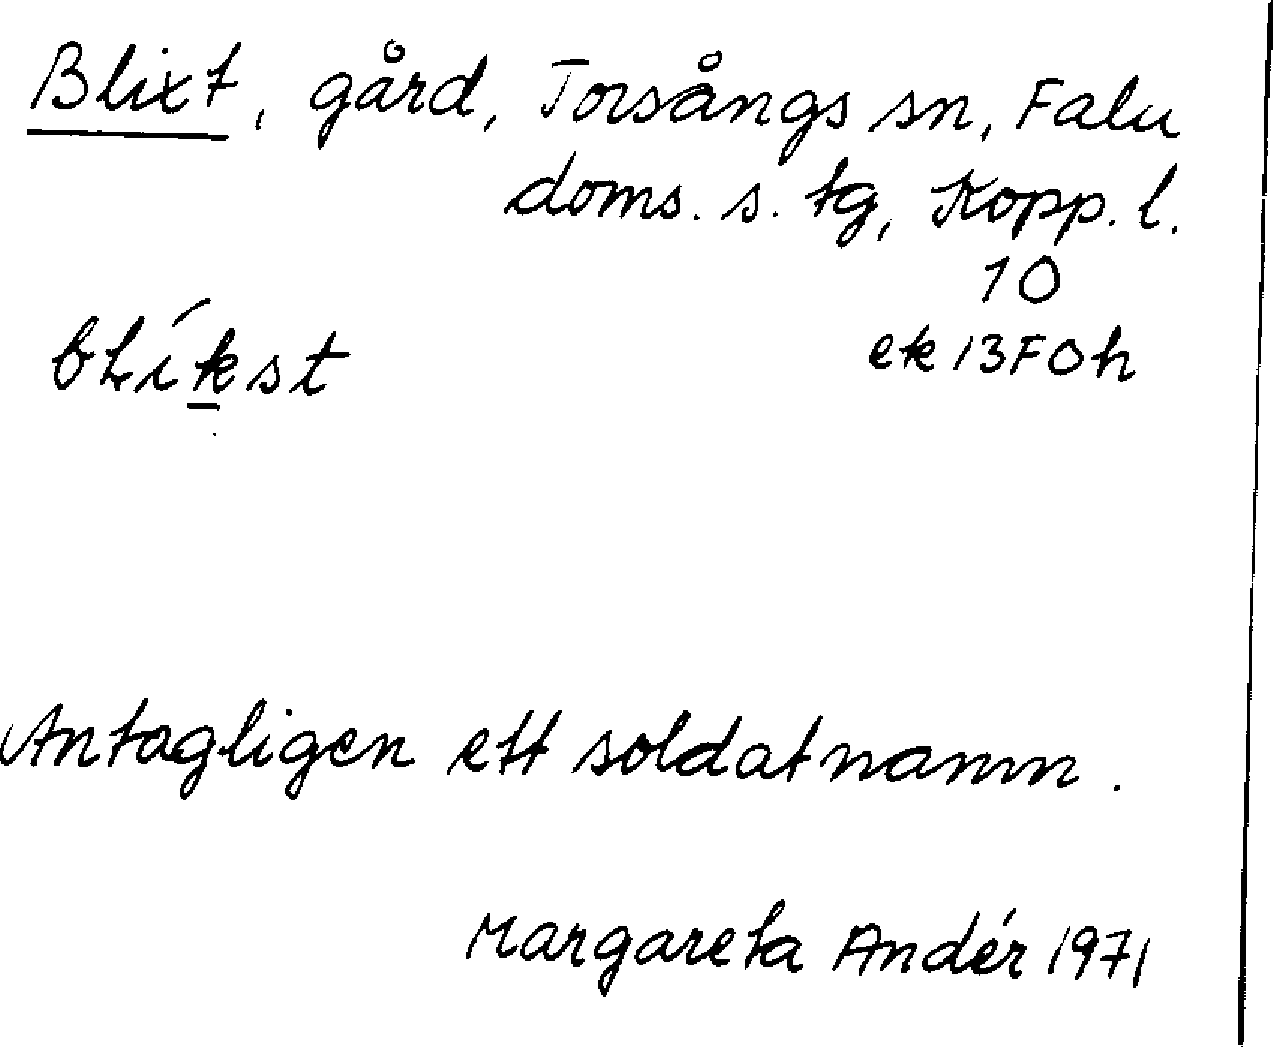 Blixt, gård, Torsångs sn, Falu
doms. s. tg, Kopp. l.
10
blíkst
ek 13F0h
Antagligen ett soldatnamn.
Margareta Andér 1971